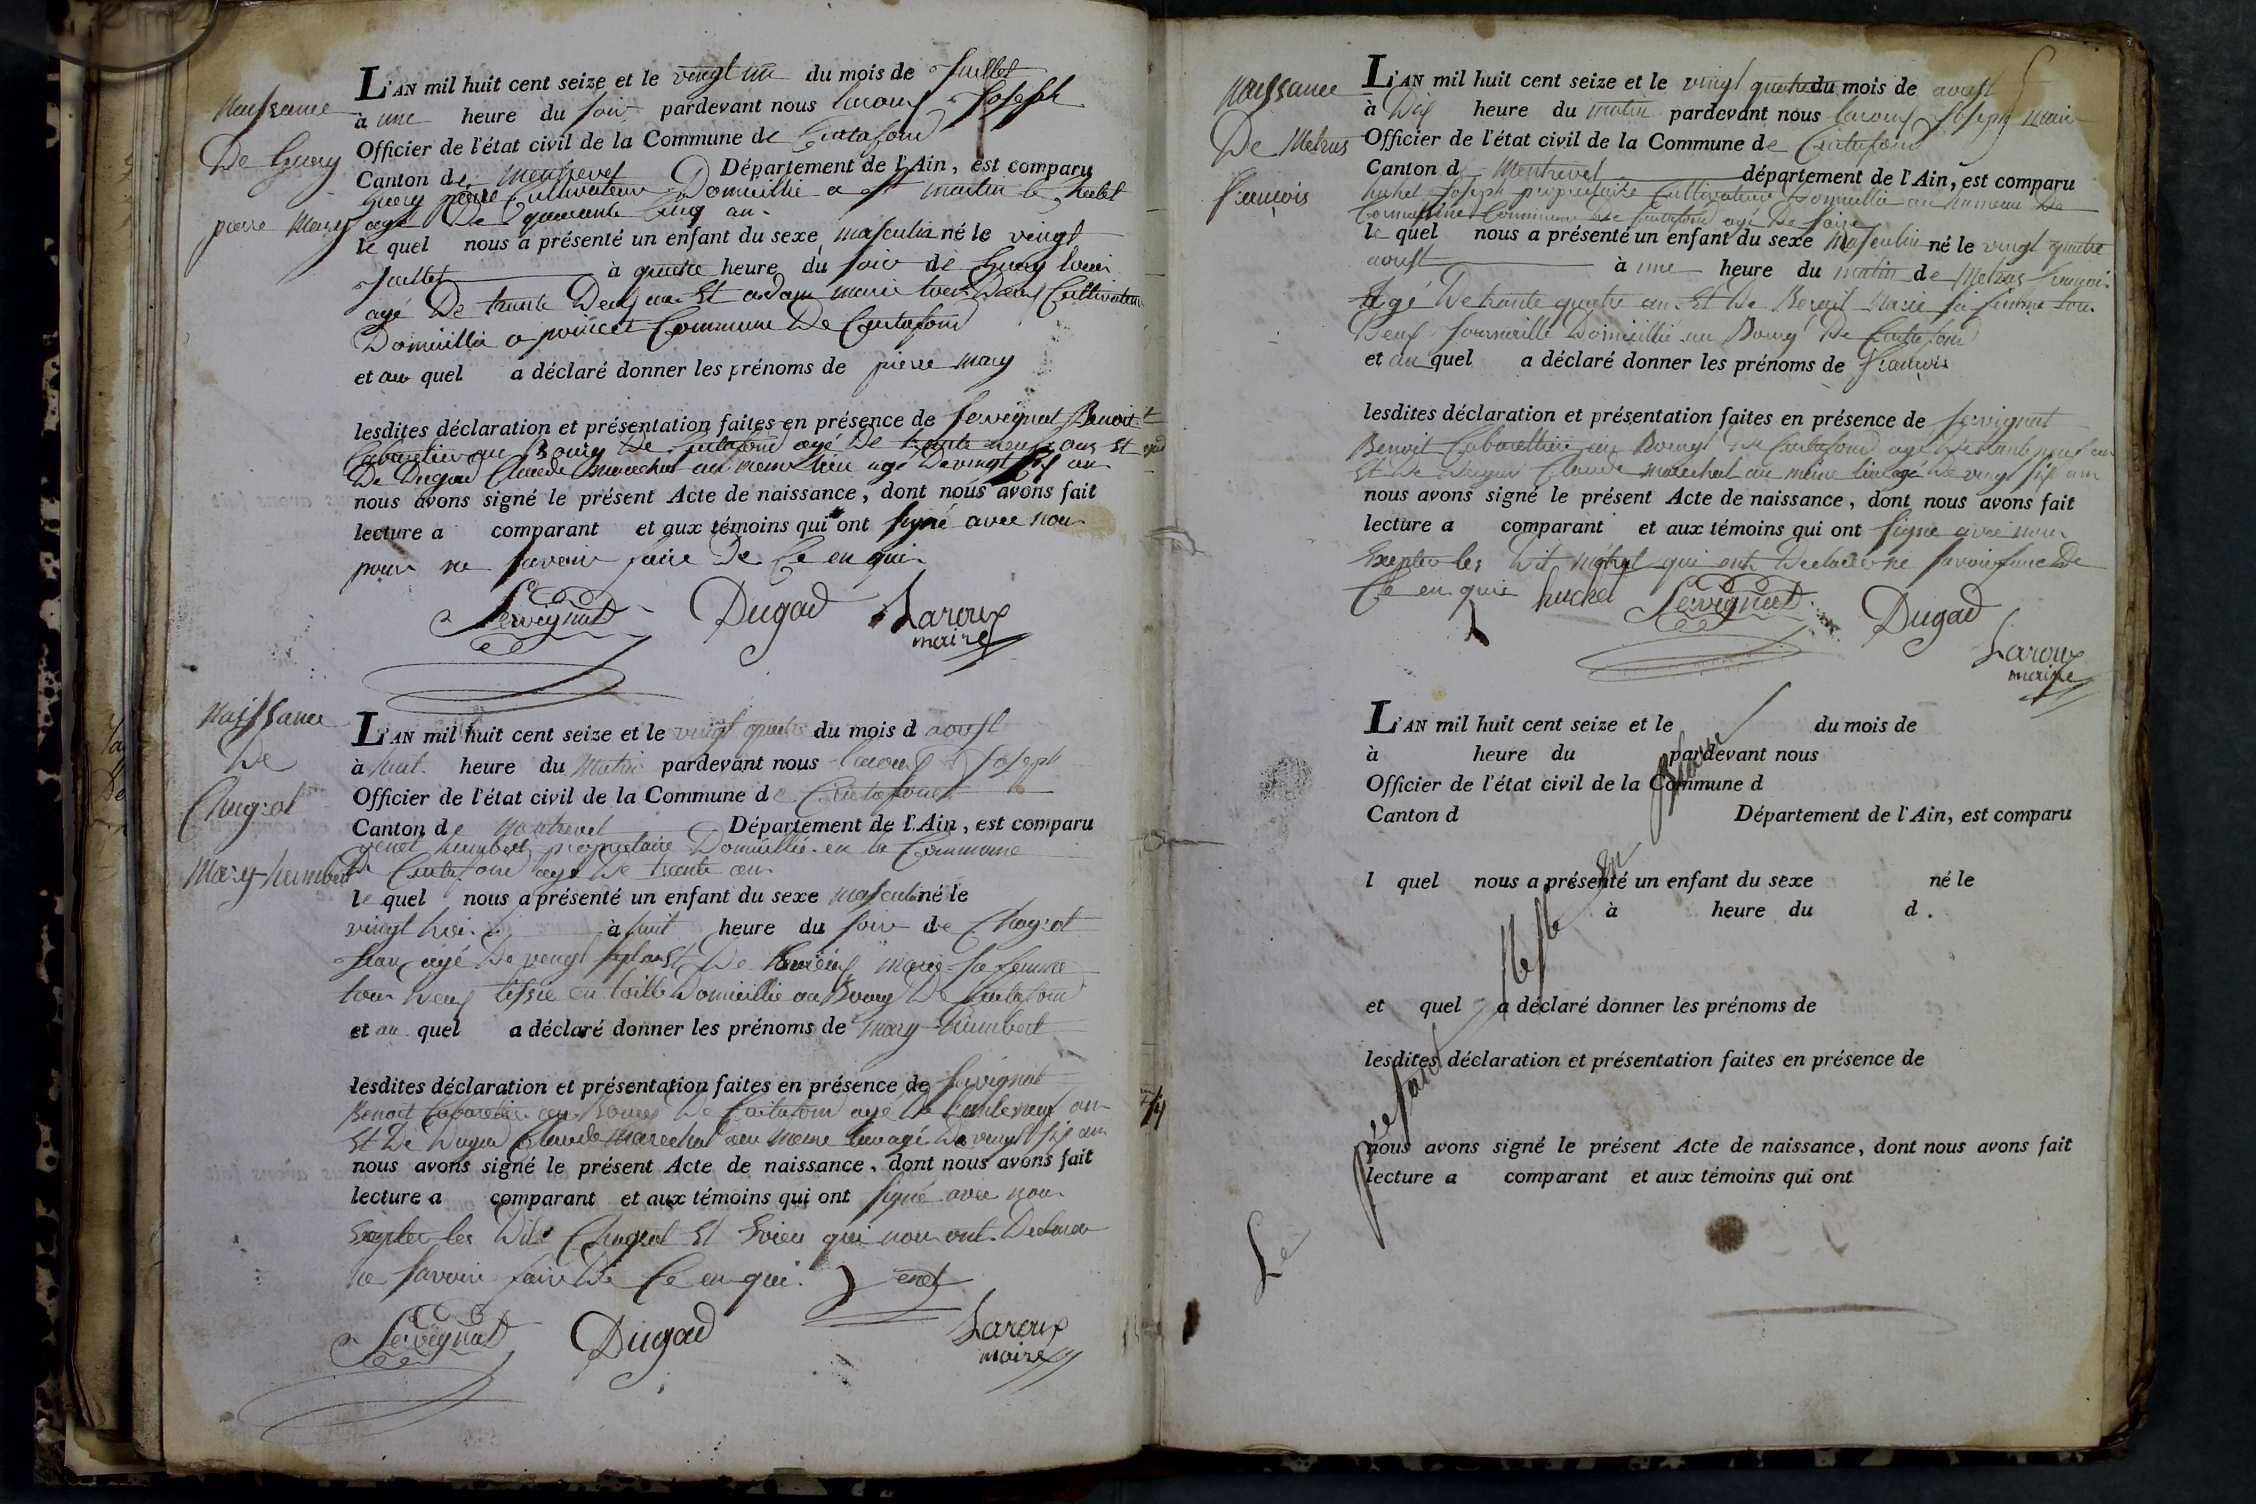 Naissance
De Guery
pierre Mary
L'AN mil huit cent seize et le vingt un du mois de Juillet
à une heure du soir pardevant nous Laroux Joseph
Officier de l'état civil de la Commune de Curtafond
Canton de Montrevel Département de l'Ain, est comparu
Guery Cultivateur Domicillié a St martin le Chatel
agé De quarante Cinq an
le quel nous a présenté un enfant du sexe masculin né le vingt
Juillet à quatre heure du soir de Guery louis
agé De trante Deux an Et adam marie tous Deux Cultivateur
Domicillié a Commune De Curtafond
et au quel a déclaré donner les prénoms de pierre mary
lesdites déclaration et présentation faites en présence de Servignat Benoit
Cabaretier au Bourg De Curtafond agé De trante neuf ans Et
De Dugad Claude marechal au meme lieu agé De vingt six an
nous avons signé le présent Acte de naissance, dont nous avons fait
lecture a comparant et aux témoins qui ont signé avec nous
pour ne savoir faire De Ce enquis
Servignat Dugad Laroux
maire
Naissance
De
Chagrot
Mary humbert
L'AN mil huit cent seize et le vingt quatre du mois d aoust
à huit heure du Matin pardevant nous Laroux Joseph
Officier de l'état civil de la Commune de Curtafond
Canton de Montrevel Département de l'Ain, est comparu
yenet humbert proprietaire Domicillié en la Commune
De Curtafond agé De trante an
le quel nous a présenté un enfant du sexe masculin né le
vingt trois à huit heure du soir de Chagrot
agé De vingt sept an Et De marie sa femme
tous Deux en toille Domicillié au Bourg De Curtafond
et au quel a déclaré donner les prénoms de mary humbert
lesdites déclaration et présentation faites en présence de Servignat
Benoit Cabaretier au Bourg De Curtafond agé De trante neuf an
Et De Dugad Claude marechal au meme lieu agé De vingt six an
nous avons signé le présent Acte de naissance, dont nous avons fait
lecture a comparant et aux témoins qui ont signé avec nous
Excepter les Dits Chagrot Et qui nous ont Declarer
ne savoir faire De Ce enquis. yenet
Servignat Dugad Laroux
maire
Naissance
De Metras
françois
L'AN mil huit cent seize et le vingt quatre du mois de aoust
à Dix heure du matin pardevant nous Laroux Joseph maire
Officier de l'état civil de la Commune de Curtafond
Canton d Montrevel département de l'Ain, est comparu
huchet Joseph proprietaire Cultivateur Domicillié au hameau De
Commune De Curtafond agé De
le quel nous a présenté un enfant du sexe Masculin né le vingt quatre
aoust à une heure du matin de Metras françois
Agé De trante quatre an Et De Marie sa femme tous
Deux Domicillié au Bourg De Curtafond
et au quel a déclaré donner les prénoms de françois
lesdites déclaration et présentation faites en présence de Servignat
Benoit Cabarettier au Bourg De Curtafond agé De trante neuf an
Et De Dugad Claude marechal au même lieu agé De vingt six an
nous avons signé le présent Acte de naissance, dont nous avons fait
lecture a comparant et aux témoins qui ont signé avec nous
Excepter les Dit qui ont Declarer ne savoir faire De
Ce enquis huchet Servignat Dugad
Laroux
maire
L'AN mil huit cent seize et le du mois de
à heure du pardevant nous
Officier de l'état civil de la Commune d
Canton d Département de l'Ain, est comparu
l quel nous a présenté un enfant du sexe né le
à heure du d .
et quel a déclaré donner les prénoms de
lesdites déclaration et présentation faites en présence de
nous avons signé le présent Acte de naissance, dont nous avons fait
lecture a comparant et aux témoins qui ont
Le present reste en Blanc